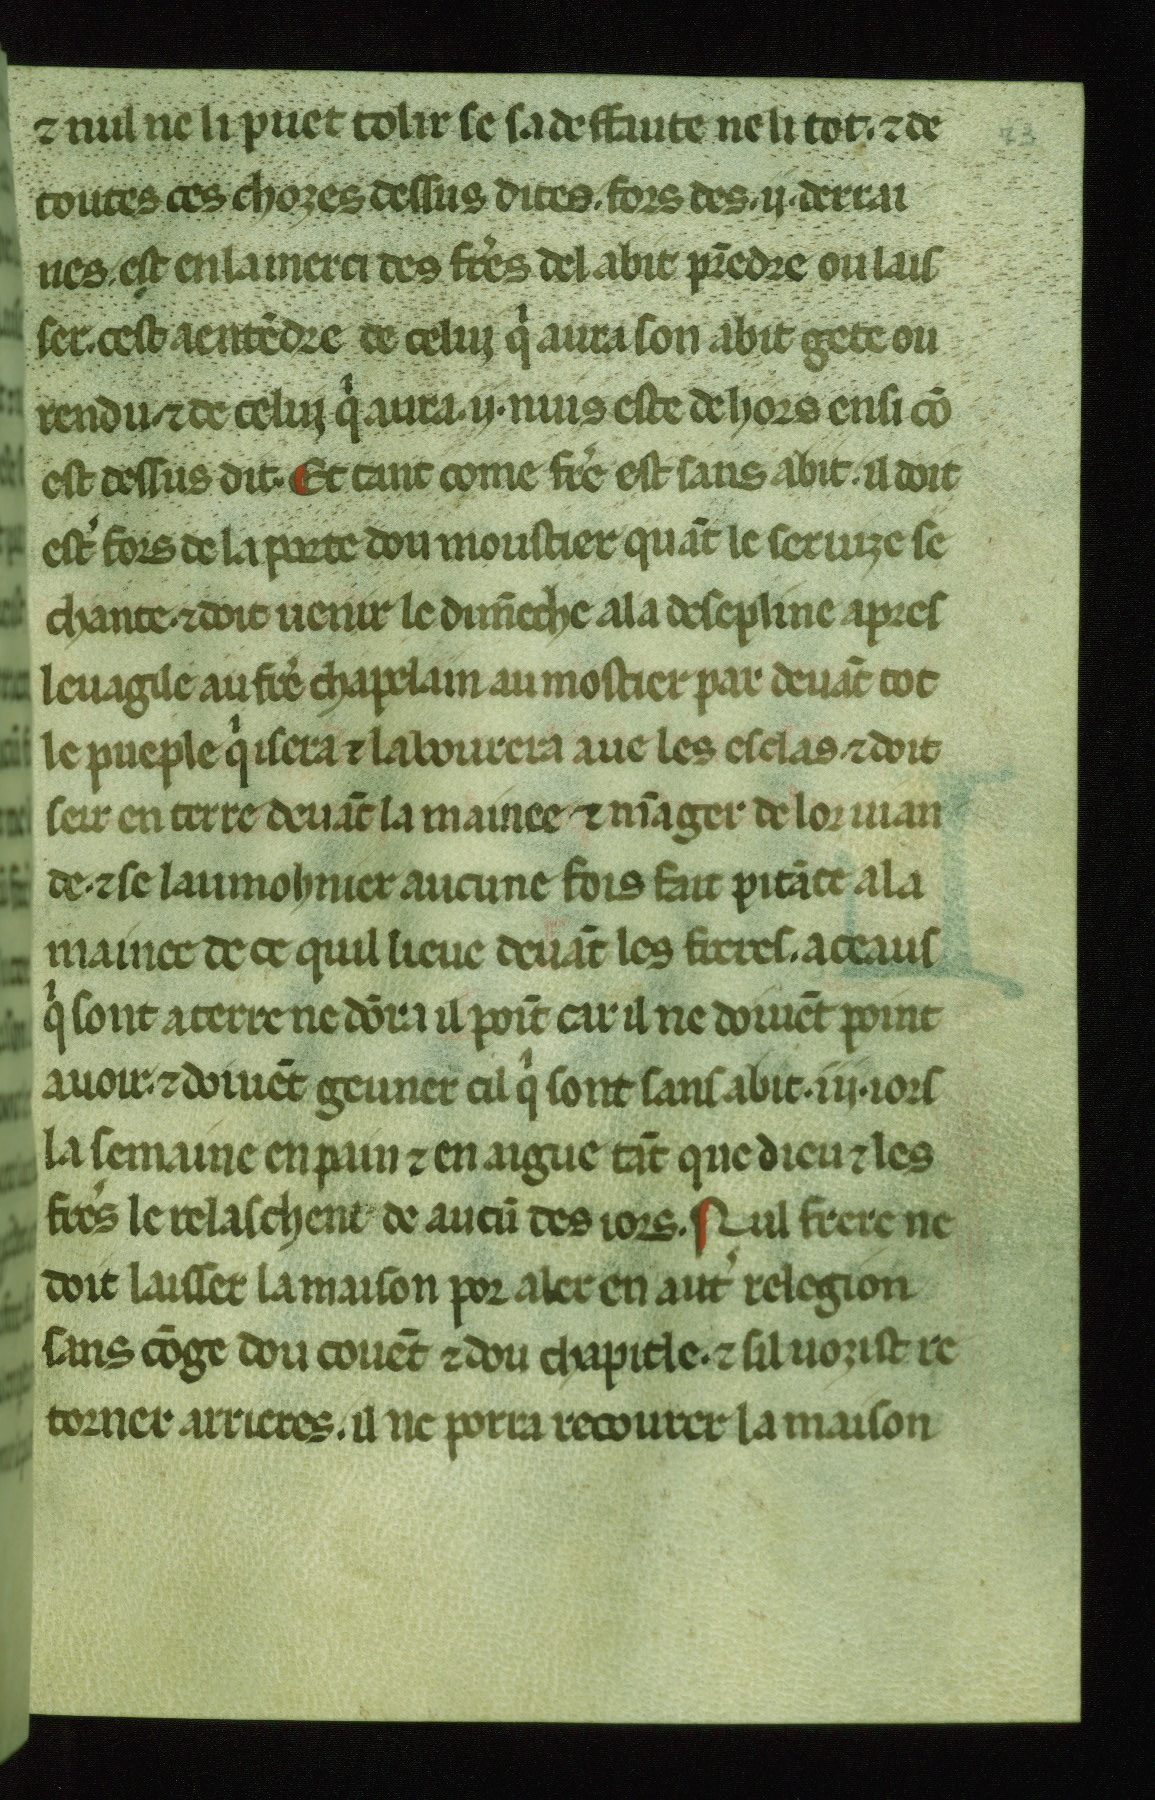 ⁊ nul ne li puet tolir se sa deffaute ne li tot. ⁊ de
23
toutes ces chozes dessus dites. fors des .ij. derrai
nes. est en la merci des frẽs del abit pr̃edre ou lais
ser. cest a entẽdre de celuj qͥ aura son abit gete ou
rendu. ⁊ de celuj qͥ aura .ij. nuis este dehors ensi cõ
est dessus dit. Et tant come frẽ est sans abit. il doit
estͬ fors de la porte dou moustier quãt le seruize se
chante. ⁊ doit uenir le dim̃eche a la desepline apres
leuagile au frẽ chapelain au mostier par deuãt tot
le pueple qͥ isera ⁊ labourera aue les esclas. ⁊ doit
seir en terre deuãt la mainee ⁊ m̃ager de lor uian
de. ⁊ se laumohnier aucune fois fait pitãce a la
mainee de ce quil lieue deuãt les freres. a ceaus
qͥ sont a terre ne dõra il poĩt car il ne doiuẽt point
auoir. ⁊ doiuẽt geuner cil qͥ sont sans abit .iij. iors
la semaine en pain ⁊ en aigue tãt que dieu ⁊ les
frẽs le relaschent de aucũ des iors. Nul frere ne
doit laisser la maison por aler en autͬ relegion
sans cõge dou couẽt ⁊ dou chapitle. ⁊ sil uozist re
torner arrieres. il ne porra recourer la maison